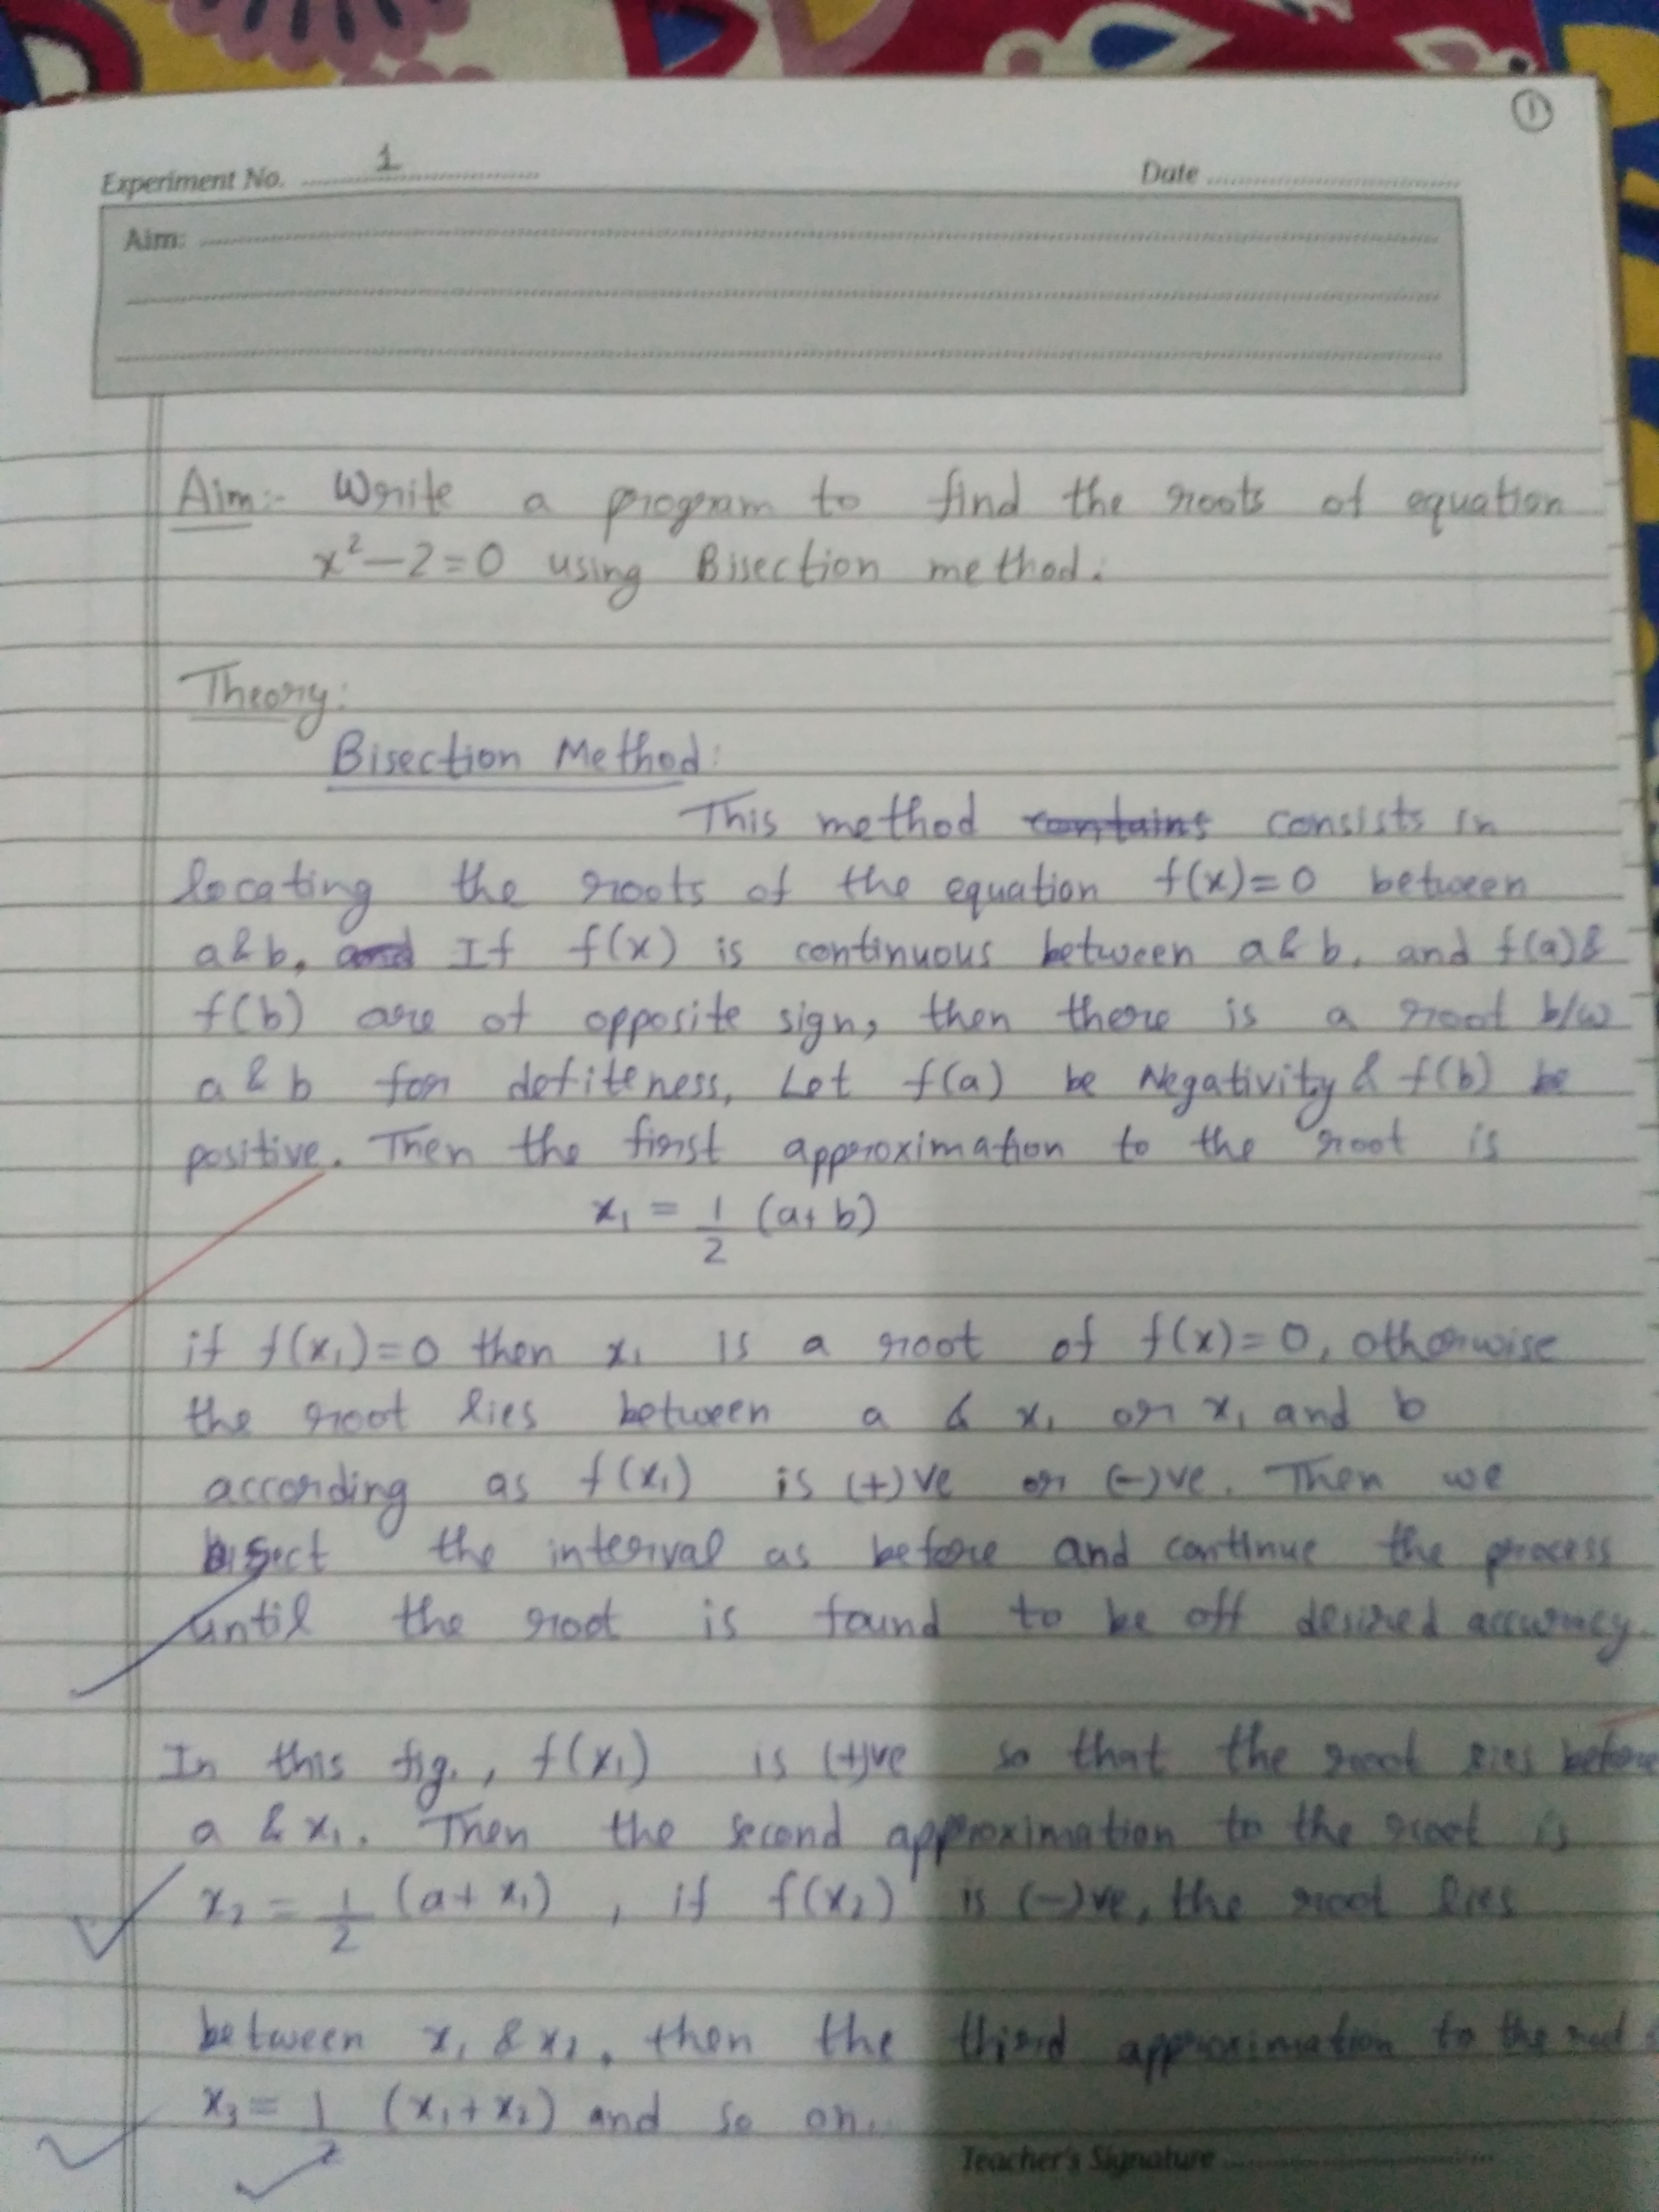 1
Experiment No. 1 Date
Aim:
Aim:- Write a program to find the roots of equation
x²-2=0 using Bisection method.
Theory:
Bisection Method:
This method contains consists in
locating the roots of the equation f(x)=0 between
a & b, and If f(x) is continuous between a & b, and f(a) &
f(b) are of opposite sign, then there is a root b/w
a & b for defiteness, Let f(a) be Negativity & f(b) be
positive. Then the first approximation to the root is
x₁ = 1/2 (a+b)
if f(x₁)=0 then x₁ is a root of f(x)=0, otherwise
the root lies between a & x₁ or x₁ and b
according as f(x₁) is (+)ve or (-)ve. Then we
bisect the interval as before and continue the process
until the root is found to be off desired accuracy.
In this fig., f(x₁) is (+)ve so that the root lies before
a & x₁. Then the second approximation to the root is
x₂ = 1/2 (a+x₁), if f(x₂) is (-)ve, the root lies
between x₁ & x₂, then the third approximation to the root
x₃ = 1/2 (x₁+x₂) and so on.
Teacher's Signature